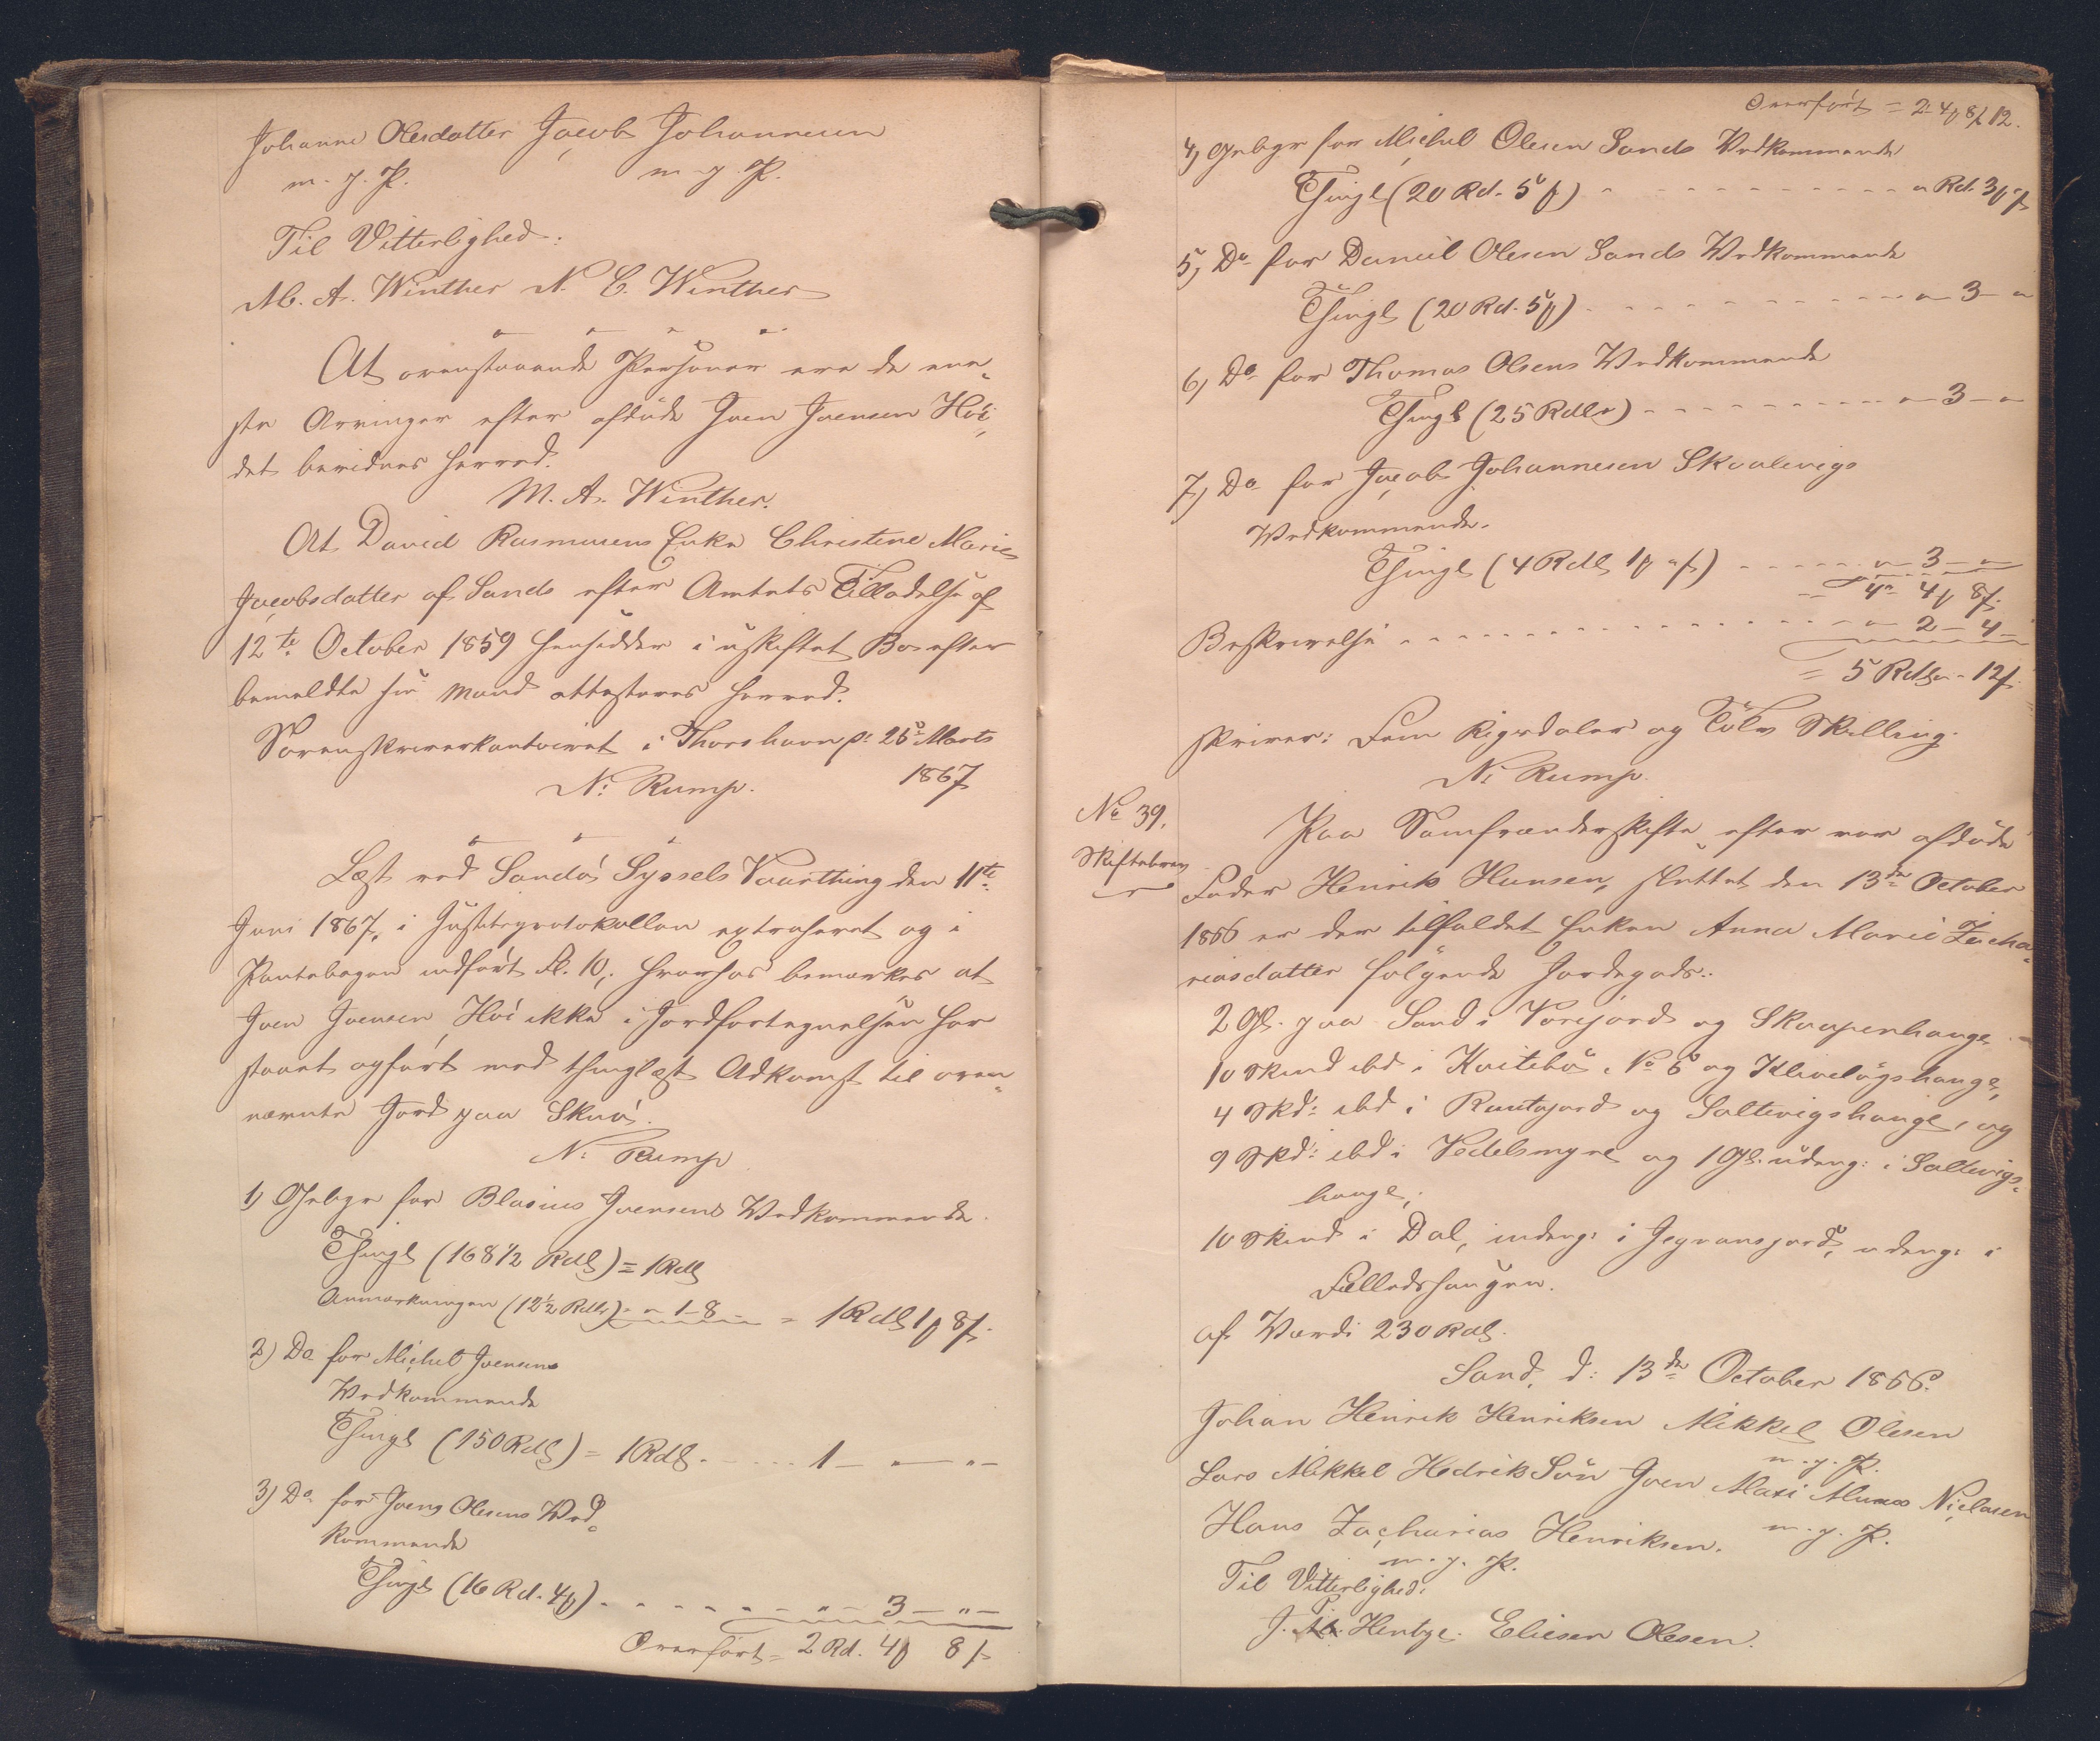 Johanne Olesdatter Jacob Johannesen
m. f. P. m. f. P.
Til Vitterlighed:
M. A. Winther N. C. Winther
At ovenstaaende Personer ere de ene-
ste Arvinger efter afdøde Joen Joensen Høi,
det bevidnes herved.
M. A. Winther.
At David Rasmusens Enke Christine Marie
Jacobsdatter af Sands efter Amtets Tilladelse af
12te October 1859 hensidder i uskiftet Bo efter
bemeldte sin Mand attesteres herved.
Sorenskriverkontoiret i Thorshavn p: 25 Marts
1867
N: Rump.
Læst ved Sandø Syssels Vaarthing den 11te
Juni 1867, i Justitsprotokollen extraheret og i
Pantebogen indført Fl. 10, hvorhos bemærkes at
Joen Joensen Høi ikke i Jordfortegnelsen har
staaet opført med thinglæst Adkomst til oven-
nævnte Jord paa Skuø.
N: Rump
1) Gebyr for Blasius Joensens Vedkommende.
Thingl (168 1/2 Rdl) = 1 Rdl
Anmærkningen (12 1/2 Rdlr) - " - 1 - 8 - = 1 Rdl 1 ß 8 f.
2) Do for Michel Joensens
Vedkommende
Thingl (150 Rdl) = 1 Rdl. - - - 1 - " - " -
3) Do for Joens Olesens Ved-
kommende
Thingl (16 Rd. 4 ß) - - - - - " - 3 - " -
Overført = 2 Rd. 4 ß 8 f
Overført = 2 - 4 ß 8 f 12.
4) Gebyr for Michel Olesen Sands Vedkommende
Thingl (20 Rd. 5 ß) - - - - " Rd. 3 ß " f
5) Do for Daniel Olesen Sands Vedkommende
Thingl (20 Rd. 5 ß) - - - - " - 3 - "
6) Do for Thomas Olsens Vedkommende
Thingl (25 Rdlr) - - - - " - 3 - "
7) Do for Jacob Johannesen Skaalevigs
Vedkommende.
Thingl (4 Rdl 1 ß " f) - - - - " - 3 - "
4 " 4 ß 8 f.
Beskrivelse - - - - " - 2 - 4 -
= 5 Rdl " - 12 f.
skriver: Fem Rigsdaler og Tolv Skilling.
N: Rump.
No 39.
Skiftebrev
Paa Samfrændeskifte efter vor afdøde
Fader Henrik Hansen, sluttet den 13de October
1866 er der tilfaldet Enken Anna Marie Zacha-
riasdatter følgende Jordegods:
2 Gl. paa Sand i Vorejord og Skaapenhauge
10 Skind ibd i Kvitebø, No 5 og Klivaløgshauge,
4 Skd: ibd i Runtajord og Saltvigshauge, og
9 Skd: ibd i Vedelsmyre og 1 Gl. udeng: i Saltvigs-
hauge;
10 Skind i Dal, indeng: i Jegvansjord, udeng: i
Fælledshaugen.
af Værdi 230 Rdl.
Sand, d: 13de October 1866.
Johan Henrik Henriksen Mikkel Olesen
m. f. P.
Lars Mikkel Hedrik Søn Joen Maxi Munos Niclasen
Hans Zacharias Henriksen. m. f. P.
m. f. P.
Til Vitterlighed:
J. P. Hentze. Eliesen Olesen.